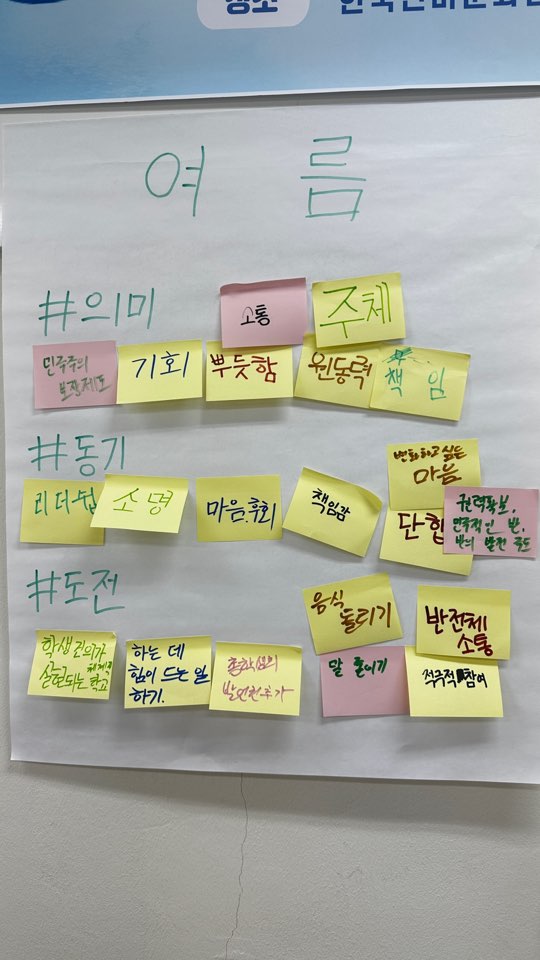 장소
여 름
#의미
소통
주체
민주주의
보장제도
기회
뿌듯함
원동력
책 임
#동기
리더쉽
소명
마음.후회
책임감
변화하고 싶은
마음
단합
권력확보.
민주적인 반.
반의 발전 주도
#도전
음식
돌리기
반전체
소통
학생 전의가
실현되는 학교
하는 데
힘이 드는 일
하기.
발언권 추가
말 줄이기
적극적 참여